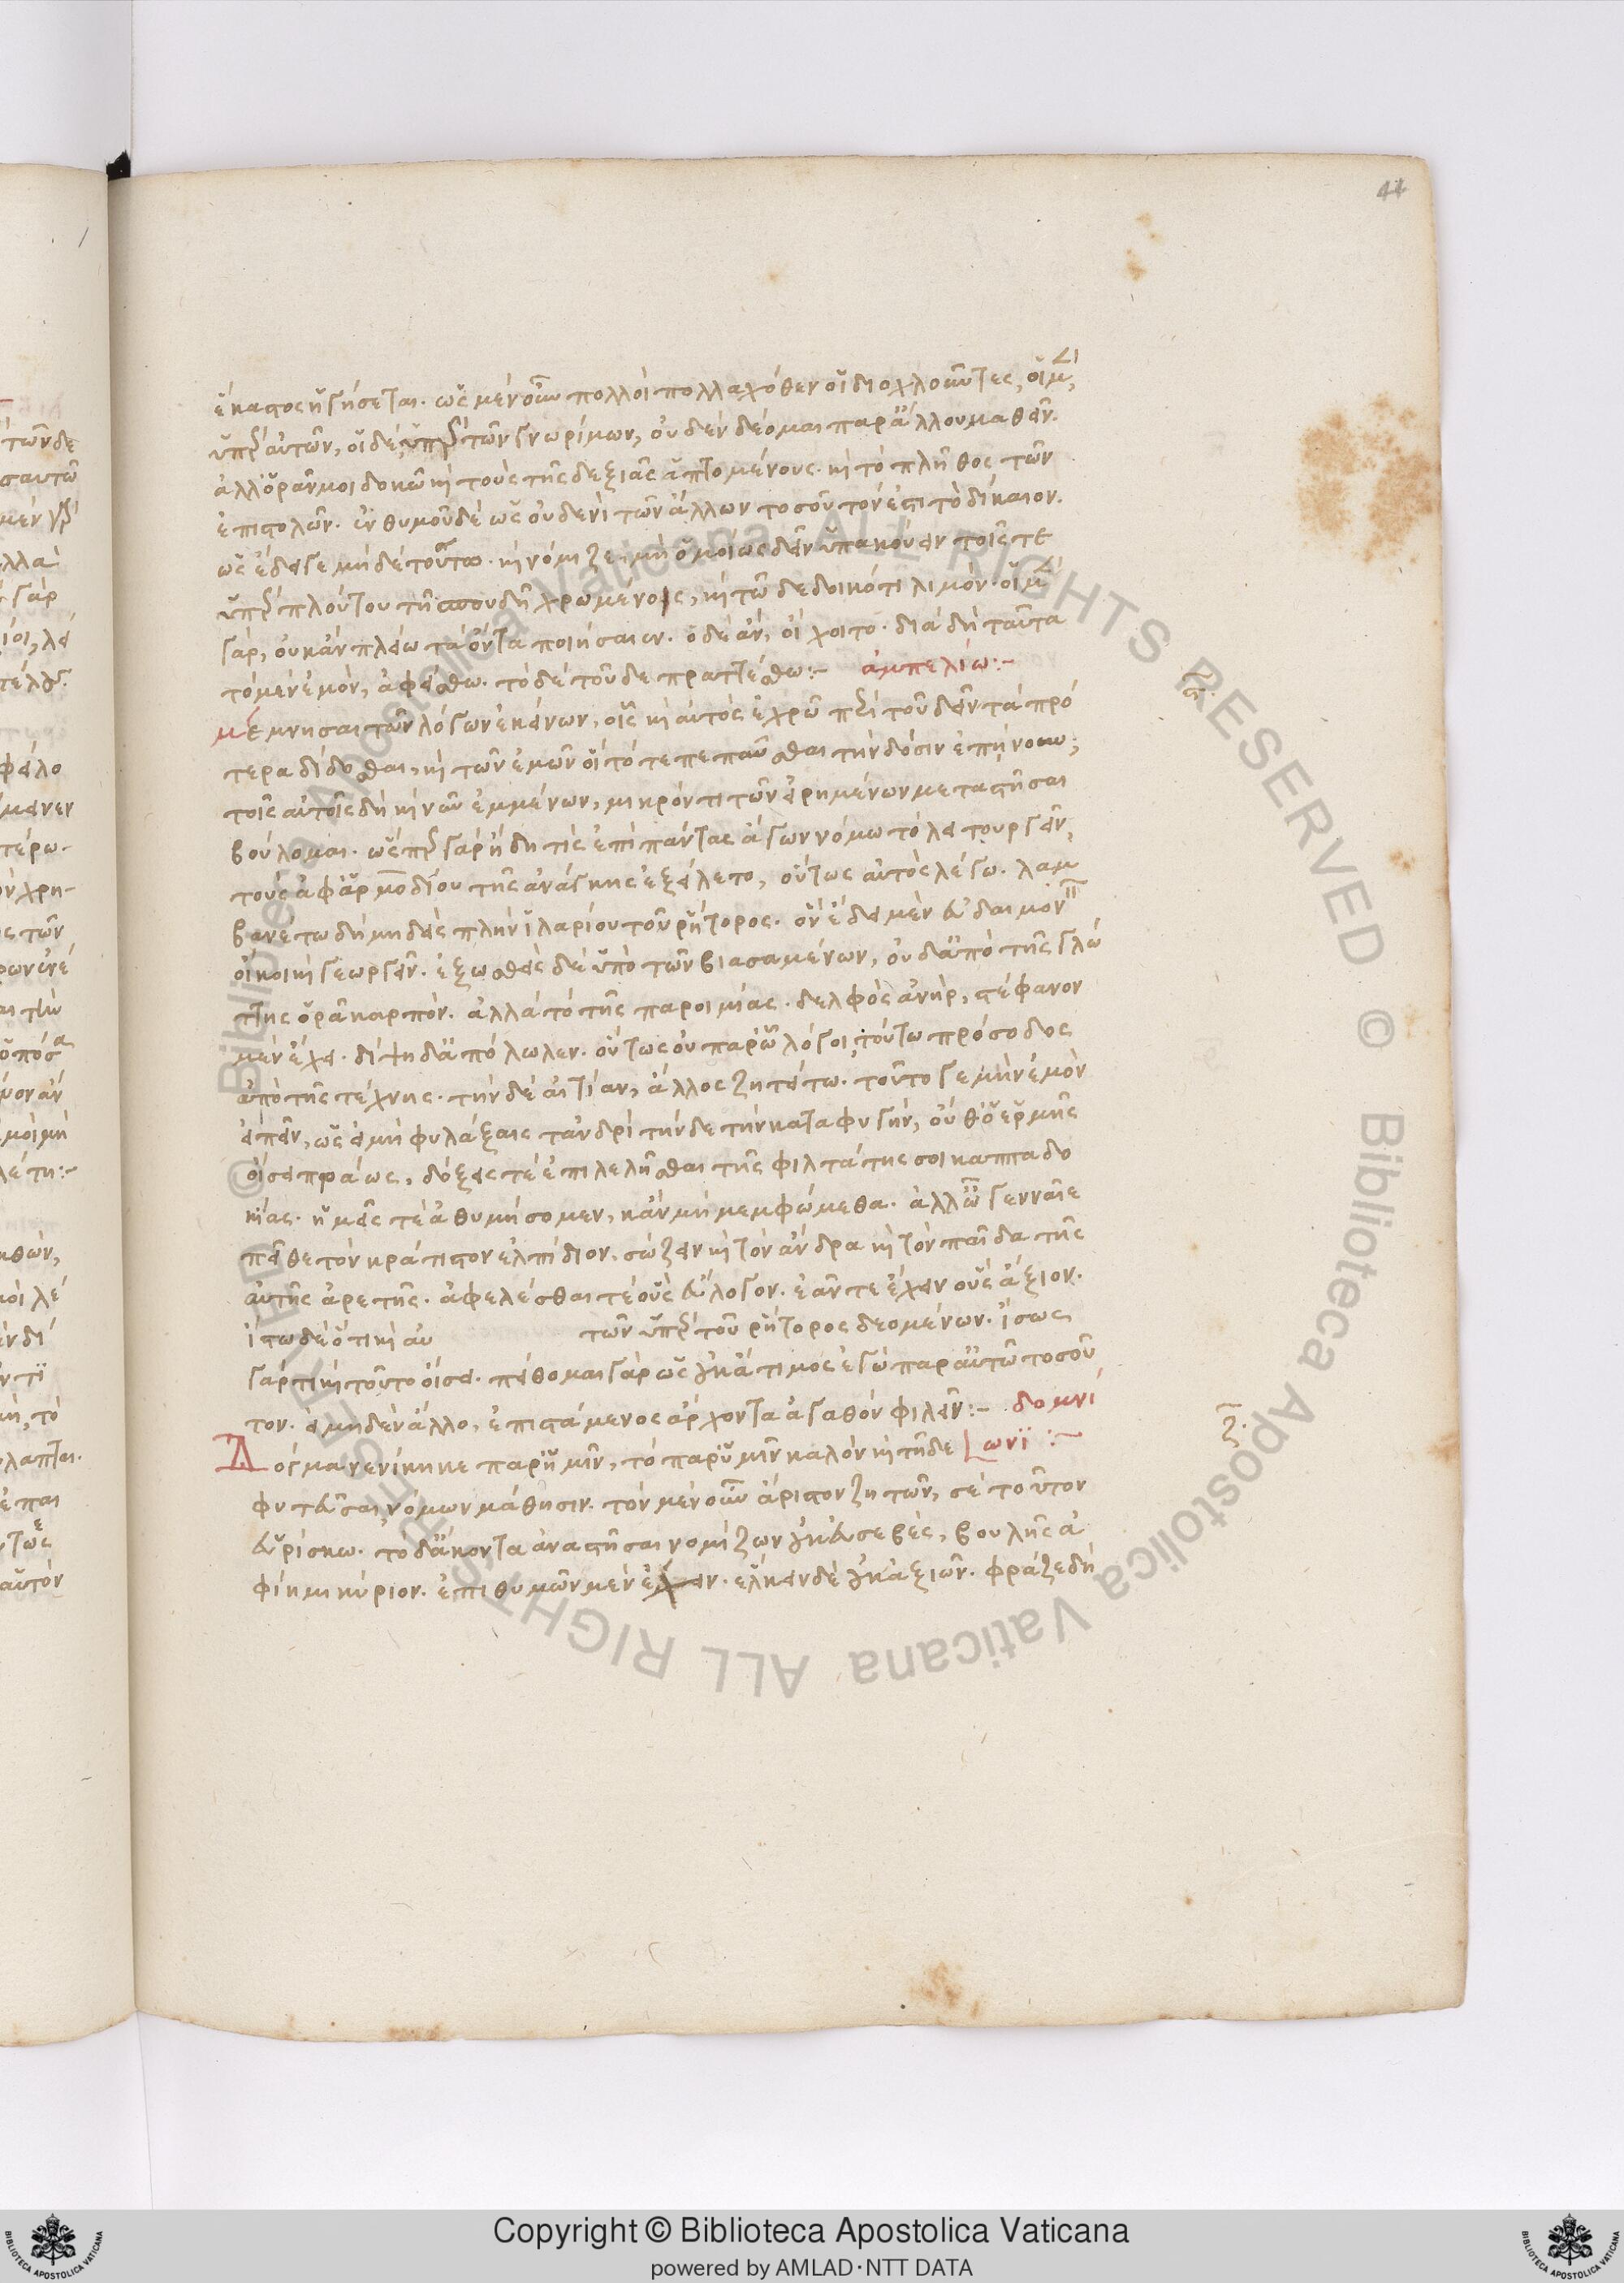 44
ἕκαστος ἡγήσεται. ὡς μὲν οὖν πολλοὶ πολλαχόθεν οἱ διοχλοῦντες, οἱ μ(ὲν)
ὑπὲρ αὑτῶν, οἱ δὲ, ὑπὲρ τῶν γνωρίμων, οὐδὲν δέομαι παρ' ἄλλου μαθεῖν.
ἀλλ' ὁρᾶν μοι δοκῶ καὶ τοὺς τῆς δεξιᾶς ἁπτομένους. καὶ τὸ πλῆθος τῶν
ἐπιστολῶν. ἐνθυμοῦ δὲ ὡς οὐδενὶ τῶν ἄλλων τοσοῦτον ἐστὶ τὸ δίκαιον.
ὡς εἴδει γε μηδὲ τούτω. καὶ νόμιζε μὴ ὁμοίως δεῖν ὑπακούειν τοῖς τε
ὑπὲρ πλούτου τῆ σπουδῆ χρωμένοις, καὶ τῶ δεδοικότι λιμόν. οἱ μὲν
γὰρ, οὐκ ἂν πλείω τὰ ὄντα ποιήσαιεν. ὁ δὲ ἂν, οἴχοιτο. διὰ δὴ ταῦτα
τὸ μὲν ἐμὸν, ἀφείσθω. τὸ δὲ τοῦδε πραττέσθω:- ἀμπελίω:-
μέμνησαι τῶν λόγων ἐκείνων, οἷς καὶ αὐτὸς ἐχρῶ περὶ τοῦ δεῖν τὰ πρό
τερα δίδοσθαι, καὶ τῶν ἐμῶν οἳ τότε πεπαῦσθαι τὴν δόσιν ἐπήνουν;
τοῖς αὐτοῖς δὴ καὶ νῦν ἐμμένων, μικρόν τι τῶν εἰρημένων μεταστῆσαι
βούλομαι. ὥσπερ γὰρ ἤδη τίς ἐπὶ πάντας ἄγων νόμω τὸ λειτουργεῖν,
τοὺς ἀφ' ἁρμοδίου τῆς ἀνάγκης ἐξείλετο, οὕτως αὐτὸς λέγω. λαμ
βανέτω δὴ μηδεὶς πλὴν ἱλαρίου τοῦ ῥήτορος. ὃν ἔδει μὲν εὐδαιμόν
οἴκοι καὶ γεωργεῖν. ἐξωσθεὶς δὲ ὑπὸ τῶν βιασαμένων, οὐδ' ἀπὸ τῆς γλώ
ττης ὁρᾶ καρπόν. ἀλλὰ τὸ τῆς παροιμίας. δελφὸς ἀνὴρ, στέφανον
μὲν ἔχει. δίψη δ' ἀπόλωλεν. οὕτως οὐ παρ' ὧ λόγοι, τούτω πρόσοδος
ἀπὸ τῆς τέχνης. τὴν δὲ αἰτίαν, ἄλλος ζητείτω. τοῦτό γε μὴν ἐμὸν
εἰπεῖν, ὡς εἰ μὴ φυλάξαις τἀνδρὶ τήνδε τὴν καταφυγὴν, οὔθ' ὁ ἑρμῆς
οἴσει πράως, δόξεις τὲ ἐπιλελῆσθαι τῆς φιλτάτης σοι καππαδο
κίας. ἡμεῖς τὲ ἀθυμήσομεν, κἂν μὴ μεμφώμεθα. ἀλλ' ὦ γενναῖε
πεῖθε τὸν κράτιστον ἐλπίδιον. σώζειν καὶ τὸν ἄνδρα καὶ τὸν παῖδα τῆς
αὐτῆς ἀρετῆς. ἀφελέσθαι τὲ οὓς εὔλογον. ἐᾶν τε ἔχειν οὓς ἄξιον.
ἴστω δὲ ὅτι καὶ αὐ τῶν ὑπὲρ τοῦ ῥήτορος δεομένων. ἴσως
γάρ τι καὶ τοῦτο οἴσει. πείθομαι γὰρ ὡς οὐκ ἄτιμος ἐγὼ παρ' αὐτῶ τοσοῦ
τον. εἰ μηδὲν ἄλλο, ἐπιστάμενος ἄρχοντα ἀγαθὸν φιλεῖν:- δομνί
Δόγμα νενίκηκε παρ' ἡμῖν, τὸ παρ' ὑμῖν καλὸν καὶ τῆδε ωνϊ :-
φυτεῦσαι νόμων μάθησιν. τὸν μὲν οὖν ἄριστον ζητῶν, σὲ τοῦτον
εὑρίσκω. τὸ δ' ἄκοντα ἀναστῆσαι νομίζων οὐκ εὐσεβὲς, βουλῆς ἀ
φίημι κύριον. ἐπιθυμῶν μὲν ἔχειν. ἕλκειν δὲ οὐκ ἀξιῶν. φράζε δὴ
ϛ.
ζ.
Copyright © Biblioteca Apostolica Vaticana
powered by AMLAD·NTT DATA